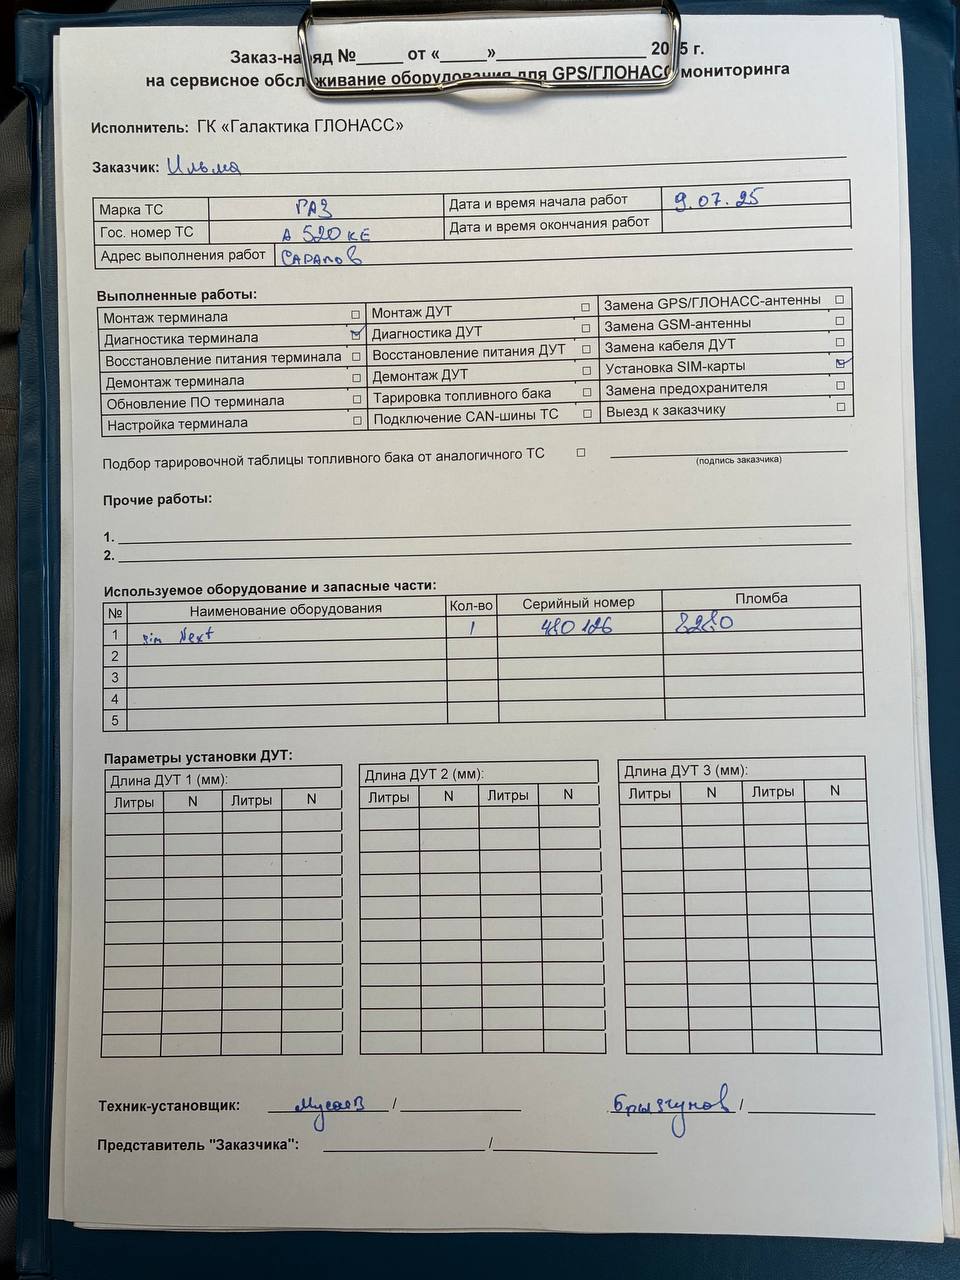 Заказ-наряд №_____ от «_____»________________ 2025 г.
на сервисное обслуживание оборудования для GPS/ГЛОНАСС мониторинга
Исполнитель: ГК «Галактика ГЛОНАСС»
Заказчик: Ильма
Марка ТС ГАЗ Дата и время начала работ 9.07.25
Гос. номер ТС А 520 КЕ Дата и время окончания работ
Адрес выполнения работ Сарапов
Выполненные работы:
Монтаж терминала □ Монтаж ДУТ □ Замена GPS/ГЛОНАСС-антенны □
Диагностика терминала ☑ Диагностика ДУТ □ Замена GSM-антенны □
Восстановление питания терминала □ Восстановление питания ДУТ □ Замена кабеля ДУТ □
Демонтаж терминала □ Демонтаж ДУТ □ Установка SIM-карты ☑
Обновление ПО терминала □ Тарировка топливного бака □ Замена предохранителя □
Настройка терминала □ Подключение CAN-шины ТС □ Выезд к заказчику □
Подбор тарировочной таблицы топливного бака от аналогичного ТС □
(подпись заказчика)
Прочие работы:
1.
2.
Используемое оборудование и запасные части:
№ Наименование оборудования Кол-во Серийный номер Пломба
1 sim Next 1 480126 8280
2
3
4
5
Параметры установки ДУТ:
Длина ДУТ 1 (мм): Длина ДУТ 2 (мм): Длина ДУТ 3 (мм):
Литры N Литры N Литры N Литры N Литры N Литры N
Техник-установщик: Мусаев / Брызгунов /
Представитель "Заказчика": /